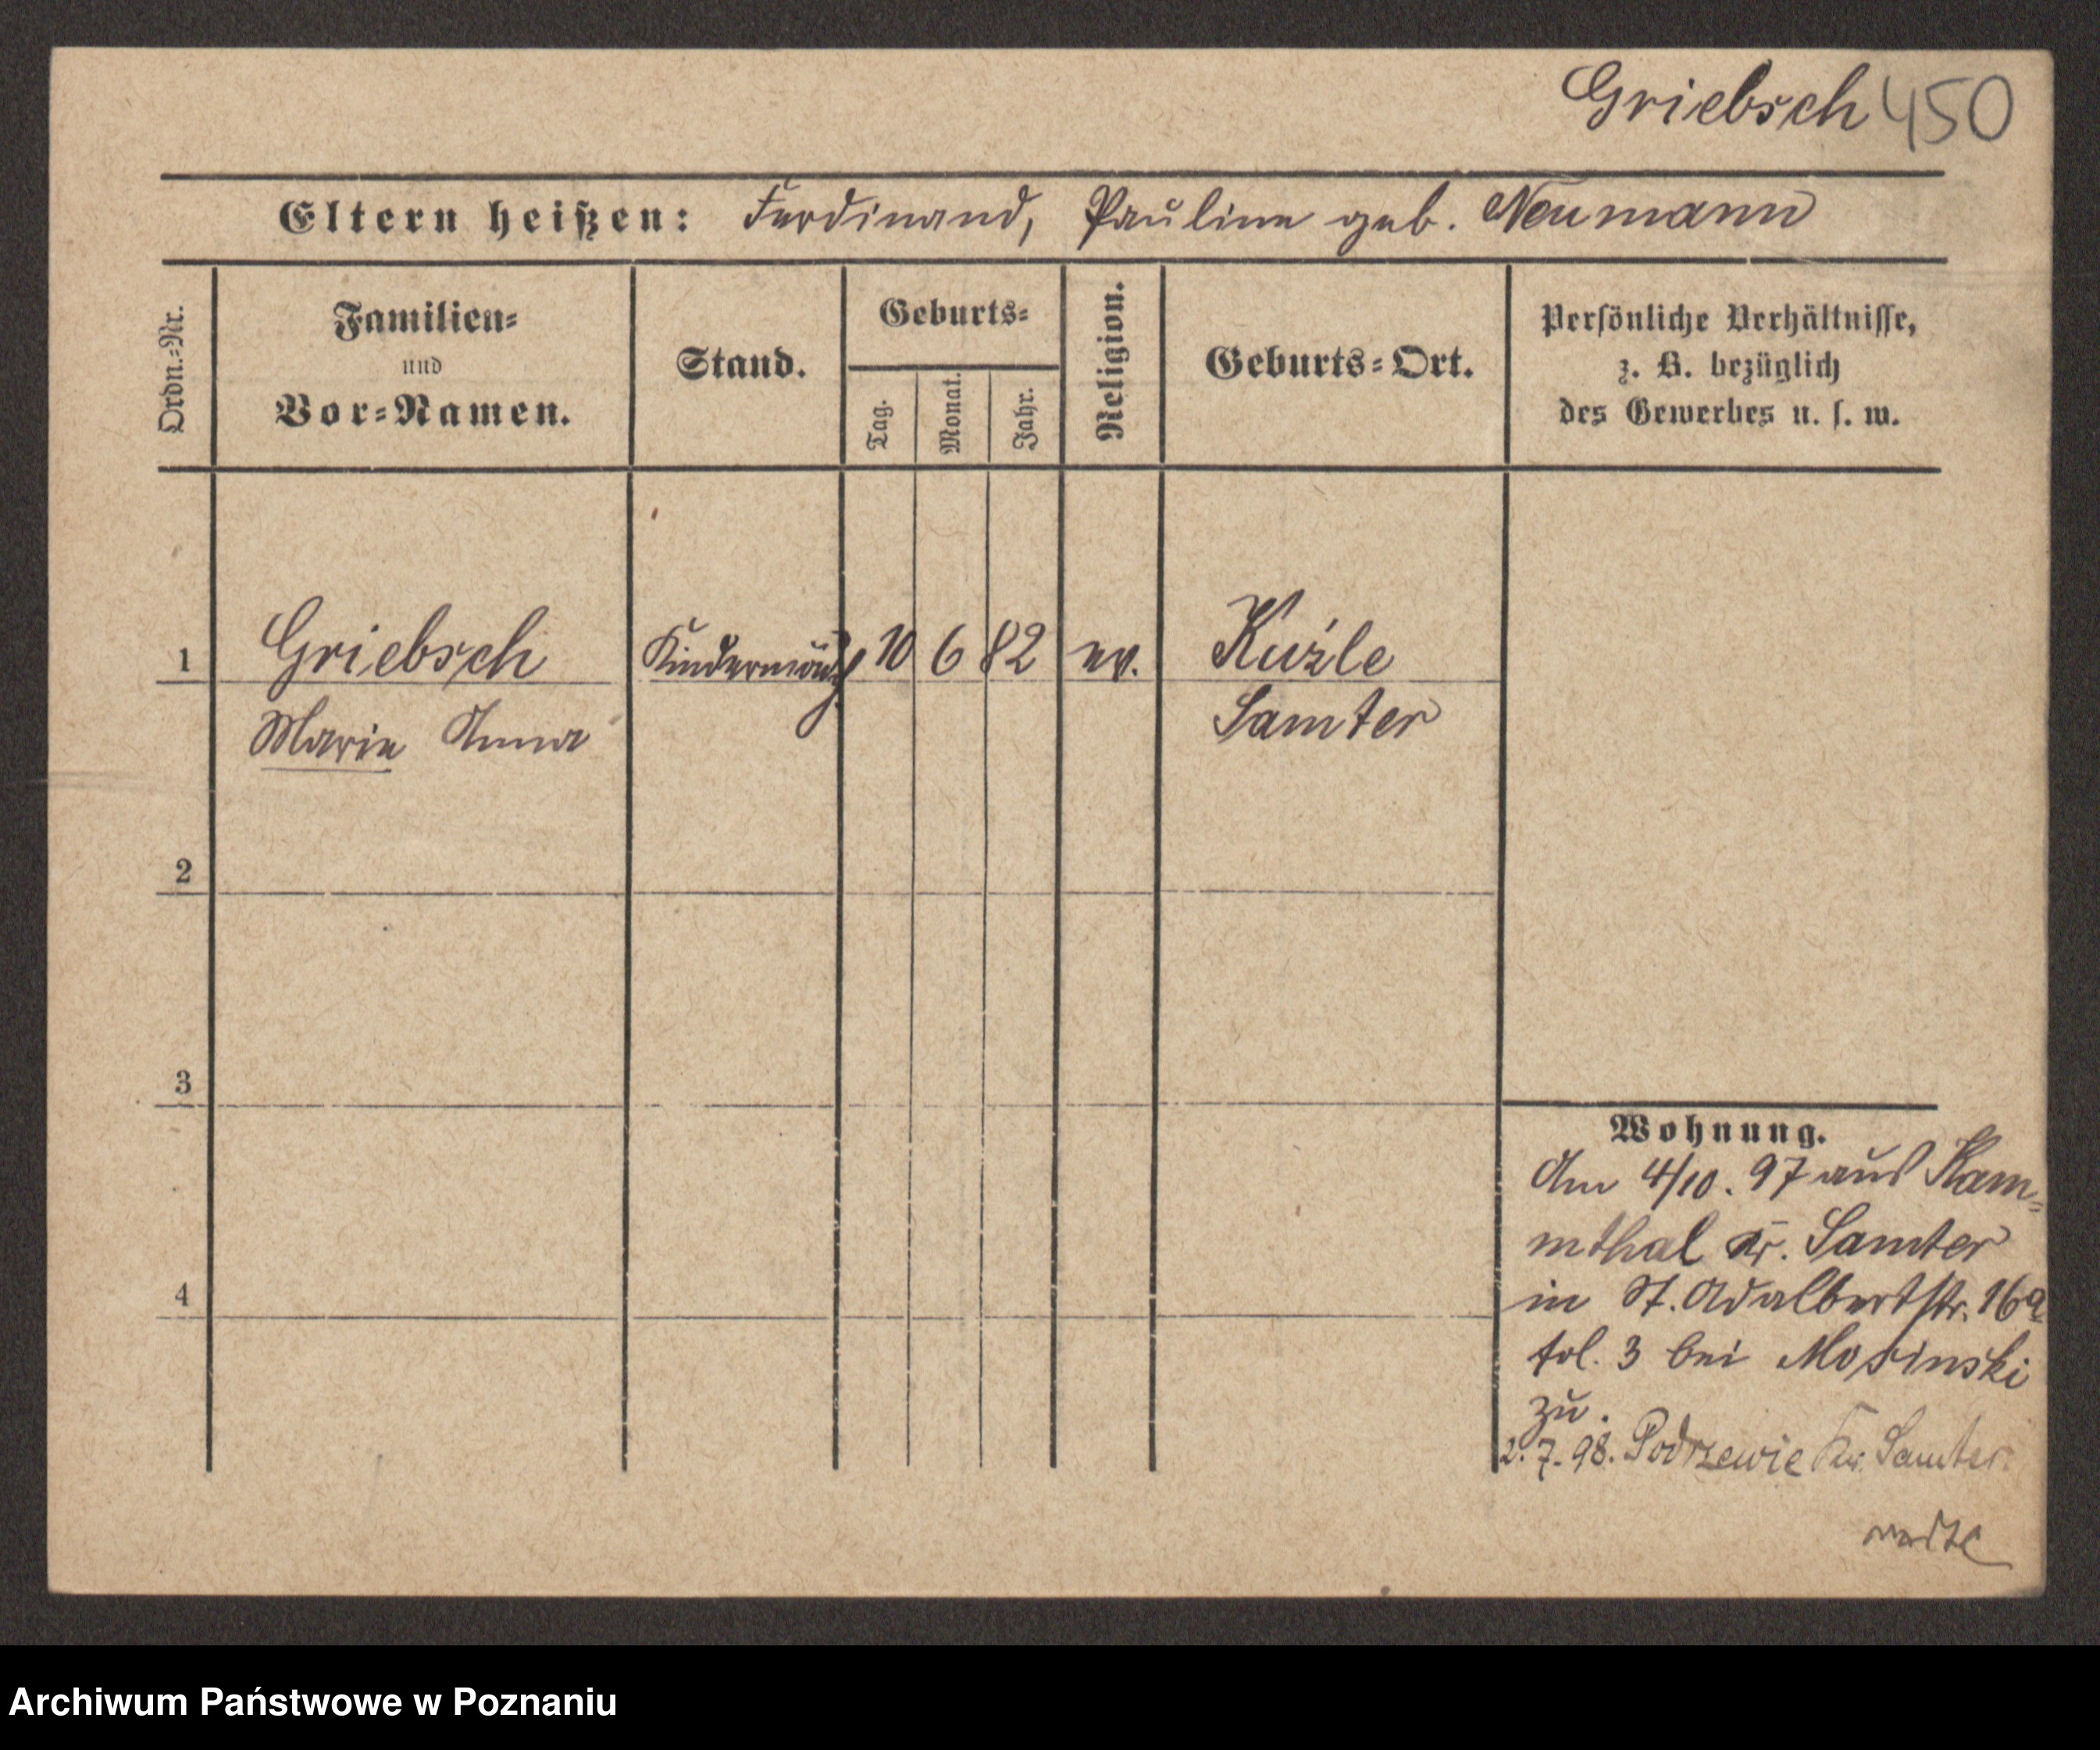 Griebsch 450
Eltern heißen: Ferdinand, Pauline geb. Neumann
Ordn.=Nr.
Familien=
und
Vor=Namen.
Stand.
Geburts=
Tag.
Monat.
Jahr.
Religion.
Geburts=Ort.
Persönliche Verhältnisse,
z. B. bezüglich
des Gewerbes u. s. w.
1 Griebsch 10 6 82 ev. Kuźle
Marie Anna Samter
2
3
4
Wohnung.
Am 4/10. 97 aus Kam=
mthal Kr. Samter
in St. Adalbertstr. 16a
tol. 3 bei Mosinski
zu.
2. 7. 98. Podrzewie Kr. Samter
Archiwum Państwowe w Poznaniu